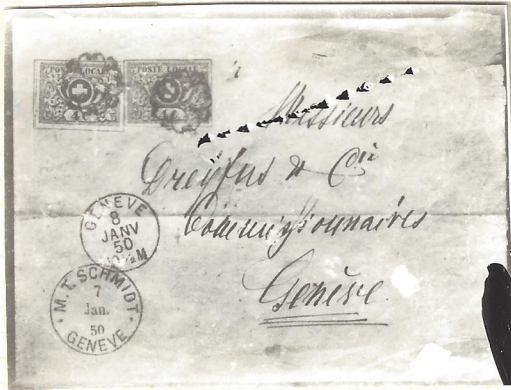 POSTE LOCALE POSTE LOCALE
4 4
Messieurs
Dreyfus & Cie
Commissionnaires
Genève
GENEVE
8
JANV
50
10½M
M.T. SCHMIDT
7
Jan.
50
GENEVE